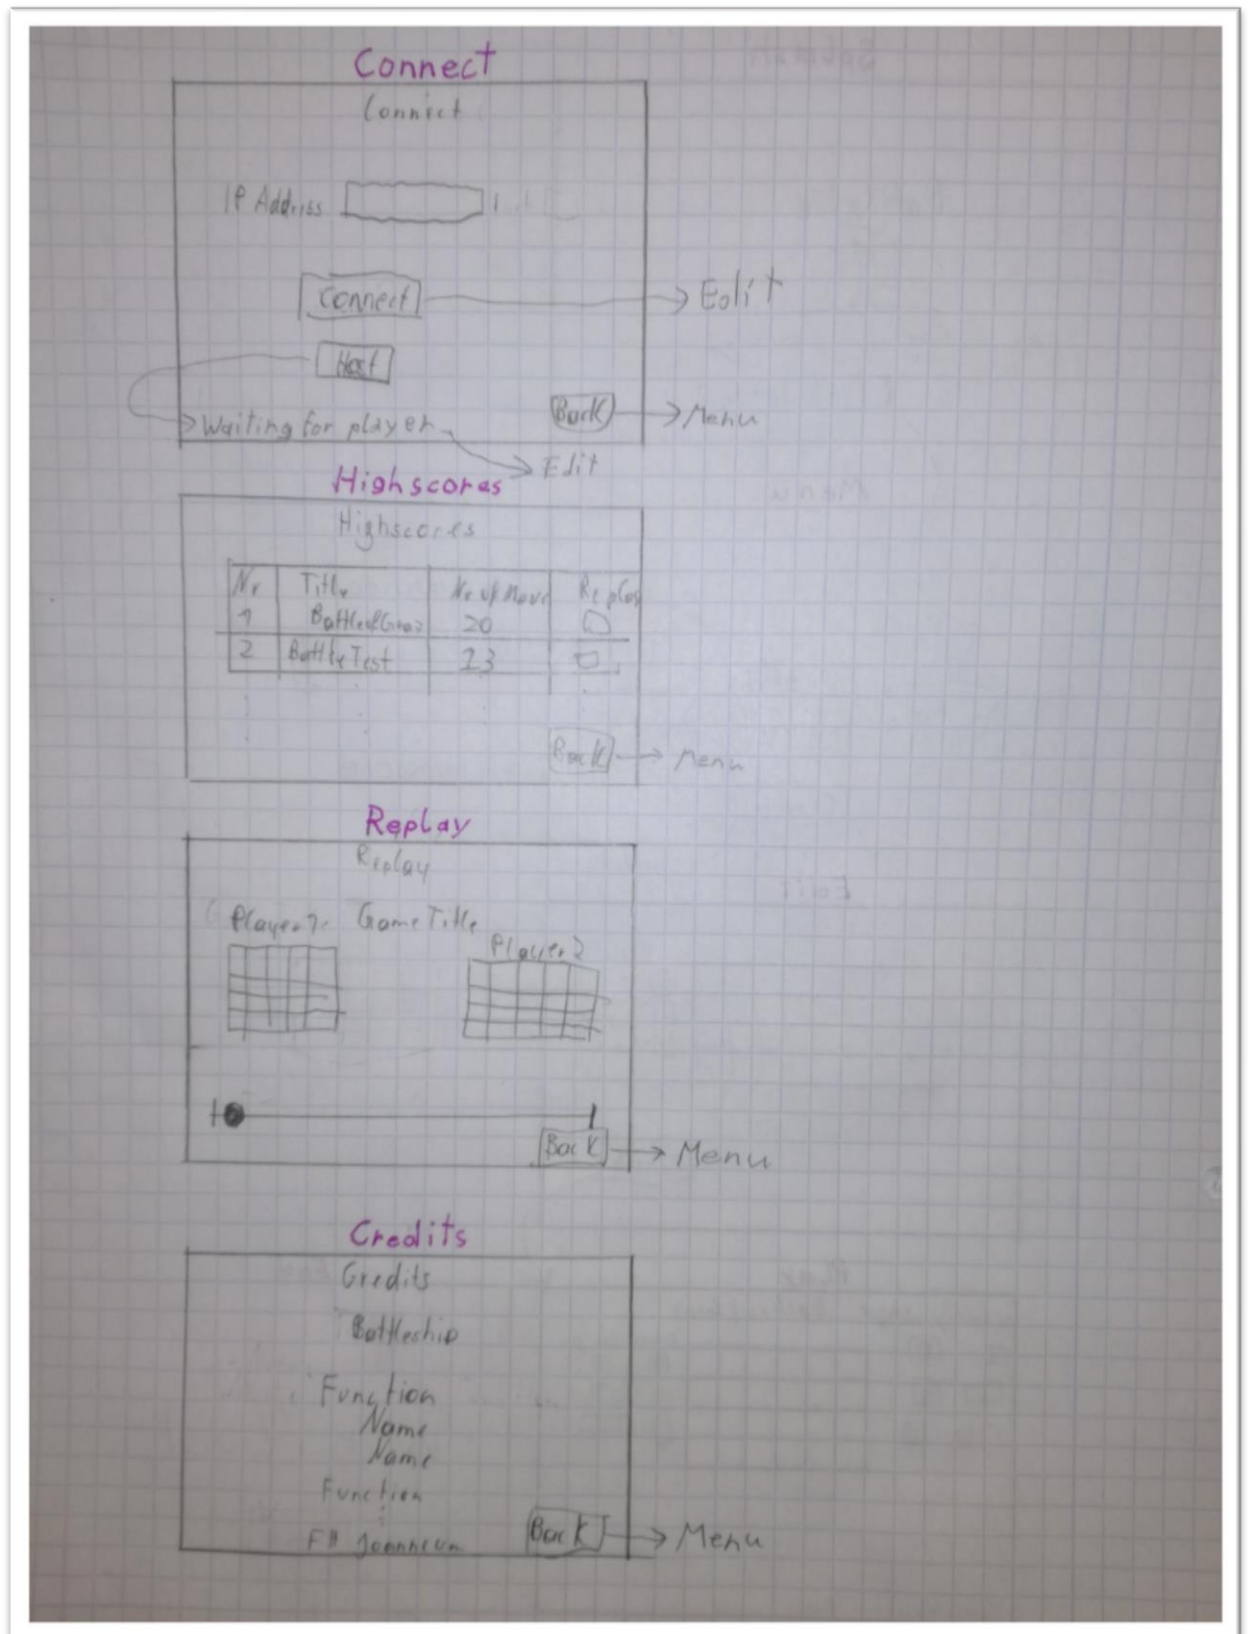 Connect
Connect
IP Address
Connect → Edit
Host
Back → Menu
Waiting for player
→ Edit
Highscores
Highscores
Nr Title Nr of Move Replay
1 BattleofGraz 20
2 Battle Test 23
Back → Menu
Replay
Replay
Player 1 Game Title
Player 2
Back → Menu
Credits
Credits
Battleship
Function
Name
Name
Function
FH Joanneum
Back → Menu